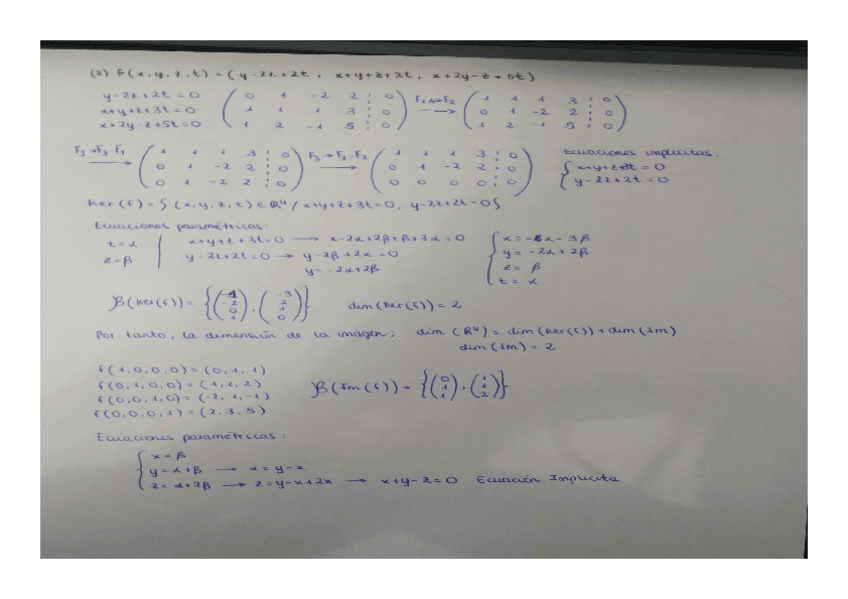 (2) f(x,y,z,t) = (y-2z+2t, x+y+z+3t, x+2y-z+5t)
y-2z+2t=0 ( 0 1 -2 2 : 0 ) F1↔F2 ( 1 1 1 3 : 0 )
x+y+z+3t=0 ( 1 1 1 3 : 0 ) → ( 0 1 -2 2 : 0 )
x+2y-z+5t=0 ( 1 2 -1 5 : 0 ) ( 1 2 -1 5 : 0 )
F3→F3-F1 ( 1 1 1 3 : 0 ) F3→F3-F2 ( 1 1 1 3 : 0 ) Ecuaciones implícitas:
( 0 1 -2 2 : 0 ) → ( 0 1 -2 2 : 0 ) { x+y+z+3t=0
( 0 1 -2 2 : 0 ) ( 0 0 0 0 : 0 ) y-2z+2t=0
Ker(f) = { (x,y,z,t) ∈ R⁴ / x+y+z+3t=0, y-2z+2t=0 }
Ecuaciones paramétricas:
t=α | x+y+z+3t=0 → x-2α+2β+β+3α=0 { x=-α-3β
z=β | y-2z+2t=0 → y-2β+2α=0 y=-2α+2β
y=-2α+2β z=β
t=α
B(Ker(f)) = {(-1 -2 0 1), (-3 2 1 0)} dim(Ker(f)) = 2
Por tanto, la dimensión de la imagen; dim(R⁴) = dim(Ker(f)) + dim(Im)
dim(Im) = 2
f(1,0,0,0) = (0,1,1)
f(0,1,0,0) = (1,1,2)
f(0,0,1,0) = (-2,1,-1)
f(0,0,0,1) = (2,3,5)
B(Im(f)) = {(0 1 1), (1 1 2)}
Ecuaciones paramétricas:
{ x=β
y=α+β → α=y-x
z=α+2β → z=y-x+2x → x+y-z=0 Ecuación Implícita